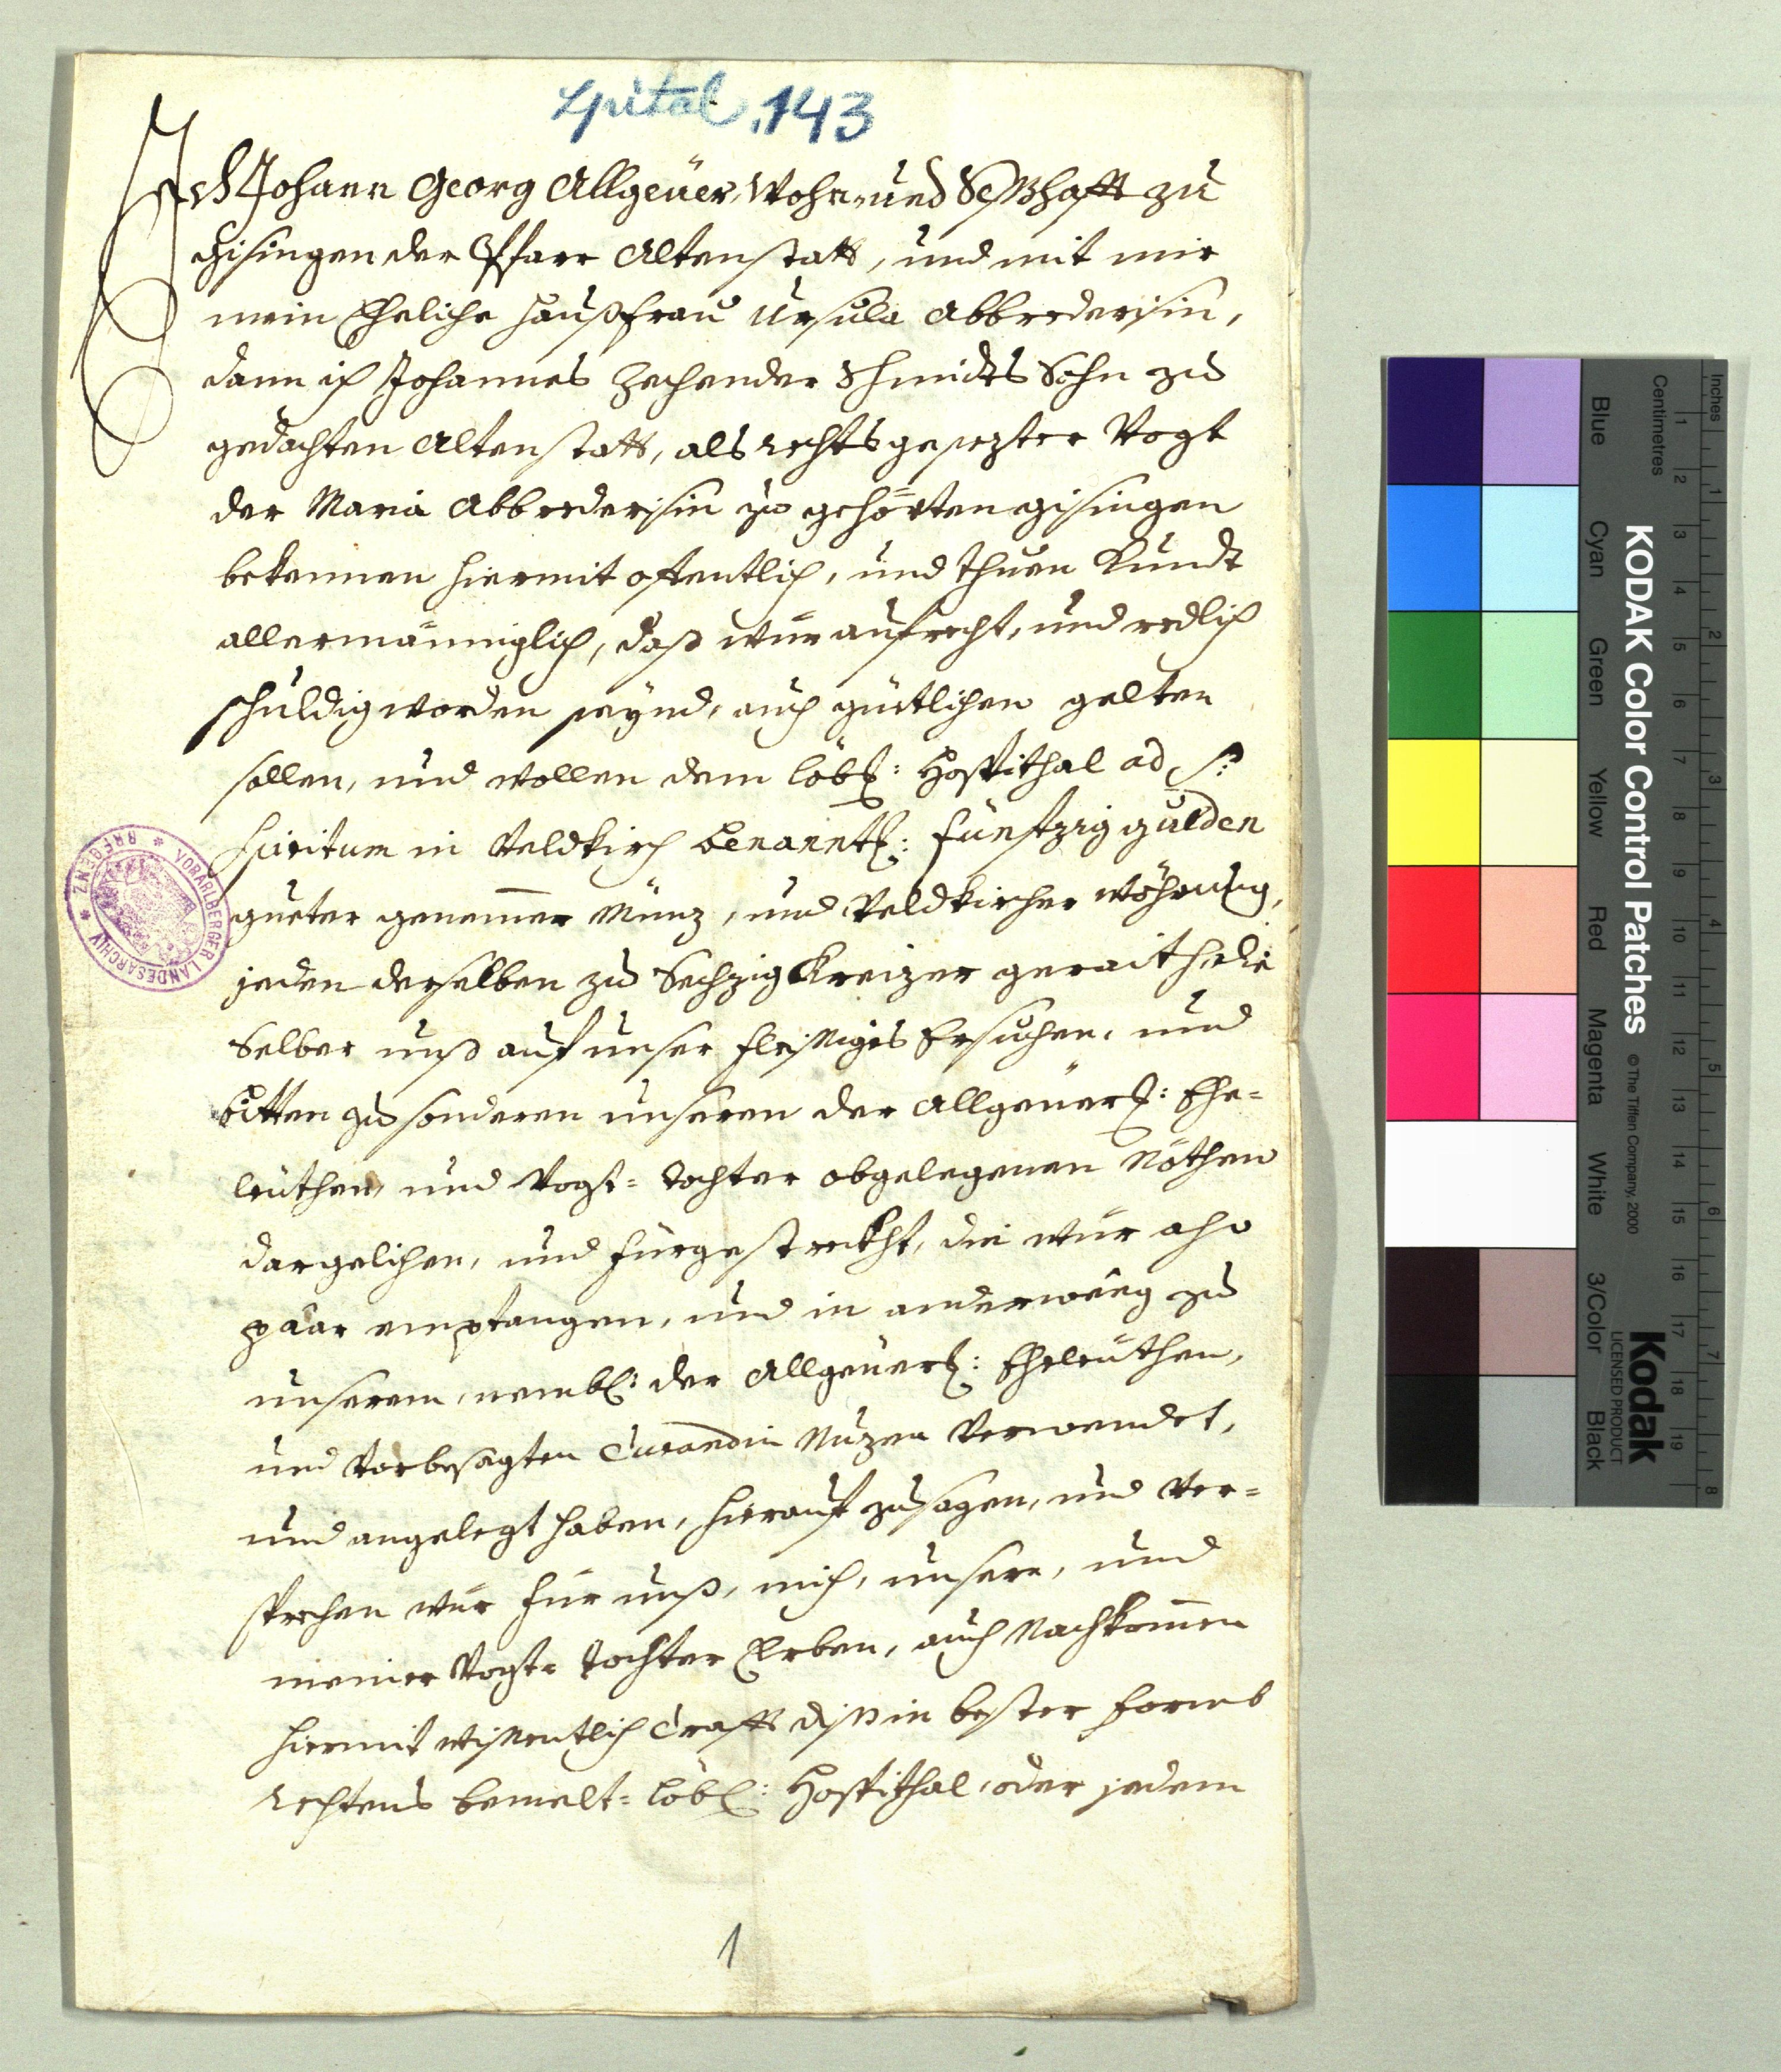 Spital. 143
Ich Johann Georg Allgeüer, Wohn- und Seßhafft zu
Gisingen der Pfarr Altenstatt, und mit mir
mein Eheliche Haußfrau Ursula Abbrederisin,
dann ich Johannes Zechender Schmidts Sohn zu
gedachten Altenstatt, als rechts gesezter Vogt
der Maria Abbrederisin zu gehörten gisingen
bekennen hiermit offentlich, und thuen Kundt
allermänniglich, daß wür aufrecht, und redlich
schuldig worden seynd, auch güetlichen gelten
sollen, und wollen dem löbl: Hospithal ad S:
Spiritum in Veldkirch benanntl: fünfzig gulden
gueter genemer Münz, und Veldkircher Wöhrung,
jeden derselben zu Sechzig Kreizer geraith, die
Selber unß auf unser fleissiges Ersuchen, und
bitten zu sonderen unseren der Allgeüerl: Ehe-
leüthen, und Vogt- tochter obgelegenen Nöthen
dargelichen, und fürgestreckht, die wür also
paar empfangen, und in anderweeg zu
unserem, nembl: der Allgeüerl: Eheleüthen,
und Vorbesagten Curandin Nuzen Verwendet,
und angelegt haben, hierauf zusagen, und Ver-
sprechen wür für unß, mich, unsere, und
meiner Vogt- tochter Erben, auch Nachkomen
hiermit wissentlich Crafft diß in bester formb
rechtens bemelt- löbl: Hospithal, oder jedem
1
VORARLBERGER LANDESARCHIV * BREGENZ *
Inches
Centimetres
1 2 3 4 5 6 7 8 9 10 11 12 13 14 15 16 17 18 19
1 2 3 4 5 6 7 8
KODAK Color Control Patches
© The Tiffen Company, 2000
Kodak
LICENSED PRODUCT
Blue
Cyan
Green
Yellow
Red
Magenta
White
3/Color
Black